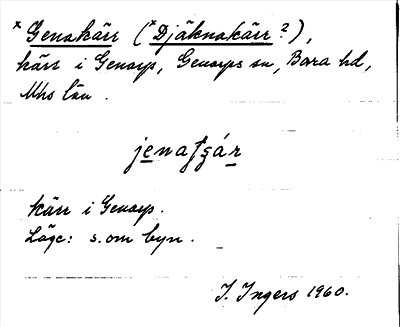 * Genakärr (* Djäknakärr?),
kärr i Genarp, Genarps sn, Bara hd,
Mhs län.
kärr i Genarp.
Läge: s.om byn.
I. Ingers 1960.